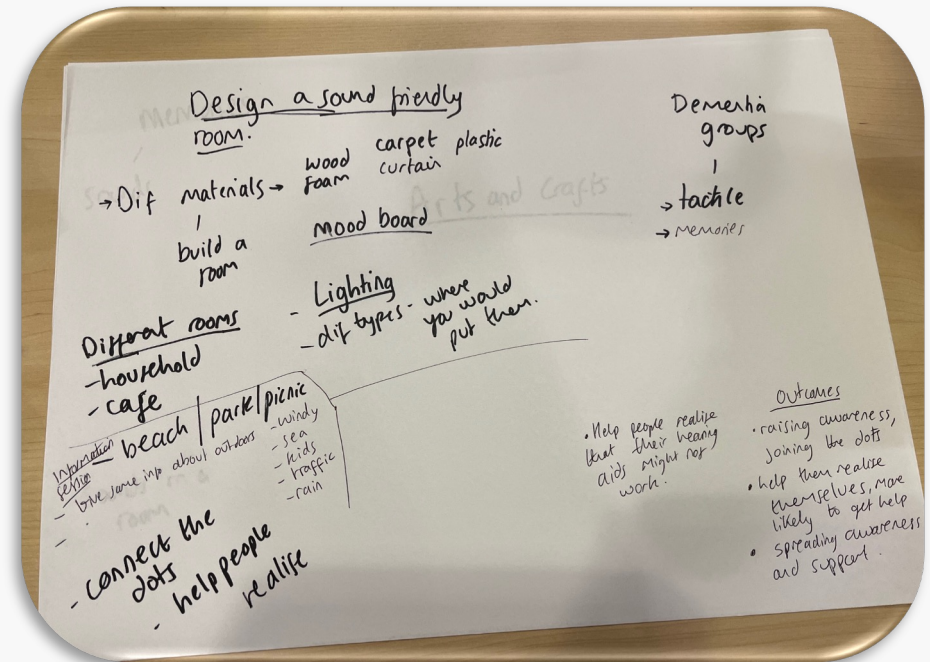 Design a sound friendly
room.
→ Dif materials →
wood carpet plastic
foam curtain
build a
room
mood board
Dementia
groups
→ tactile
→ memories
- Lighting
- dif types - where
you would
put them.
Different rooms
- household
- cafe
- beach / park / picnic
Information
- Give some info about outdoors
- windy
- sea
- kids
- traffic
- rain
- connect the
dots
- help people
realise
• Help people realise
that their hearing
aids might not
work.
Outcomes
• raising awareness,
joining the dots
• help them realise
themselves, more
likely to get help
• spreading awareness
and support.
Arts and Crafts